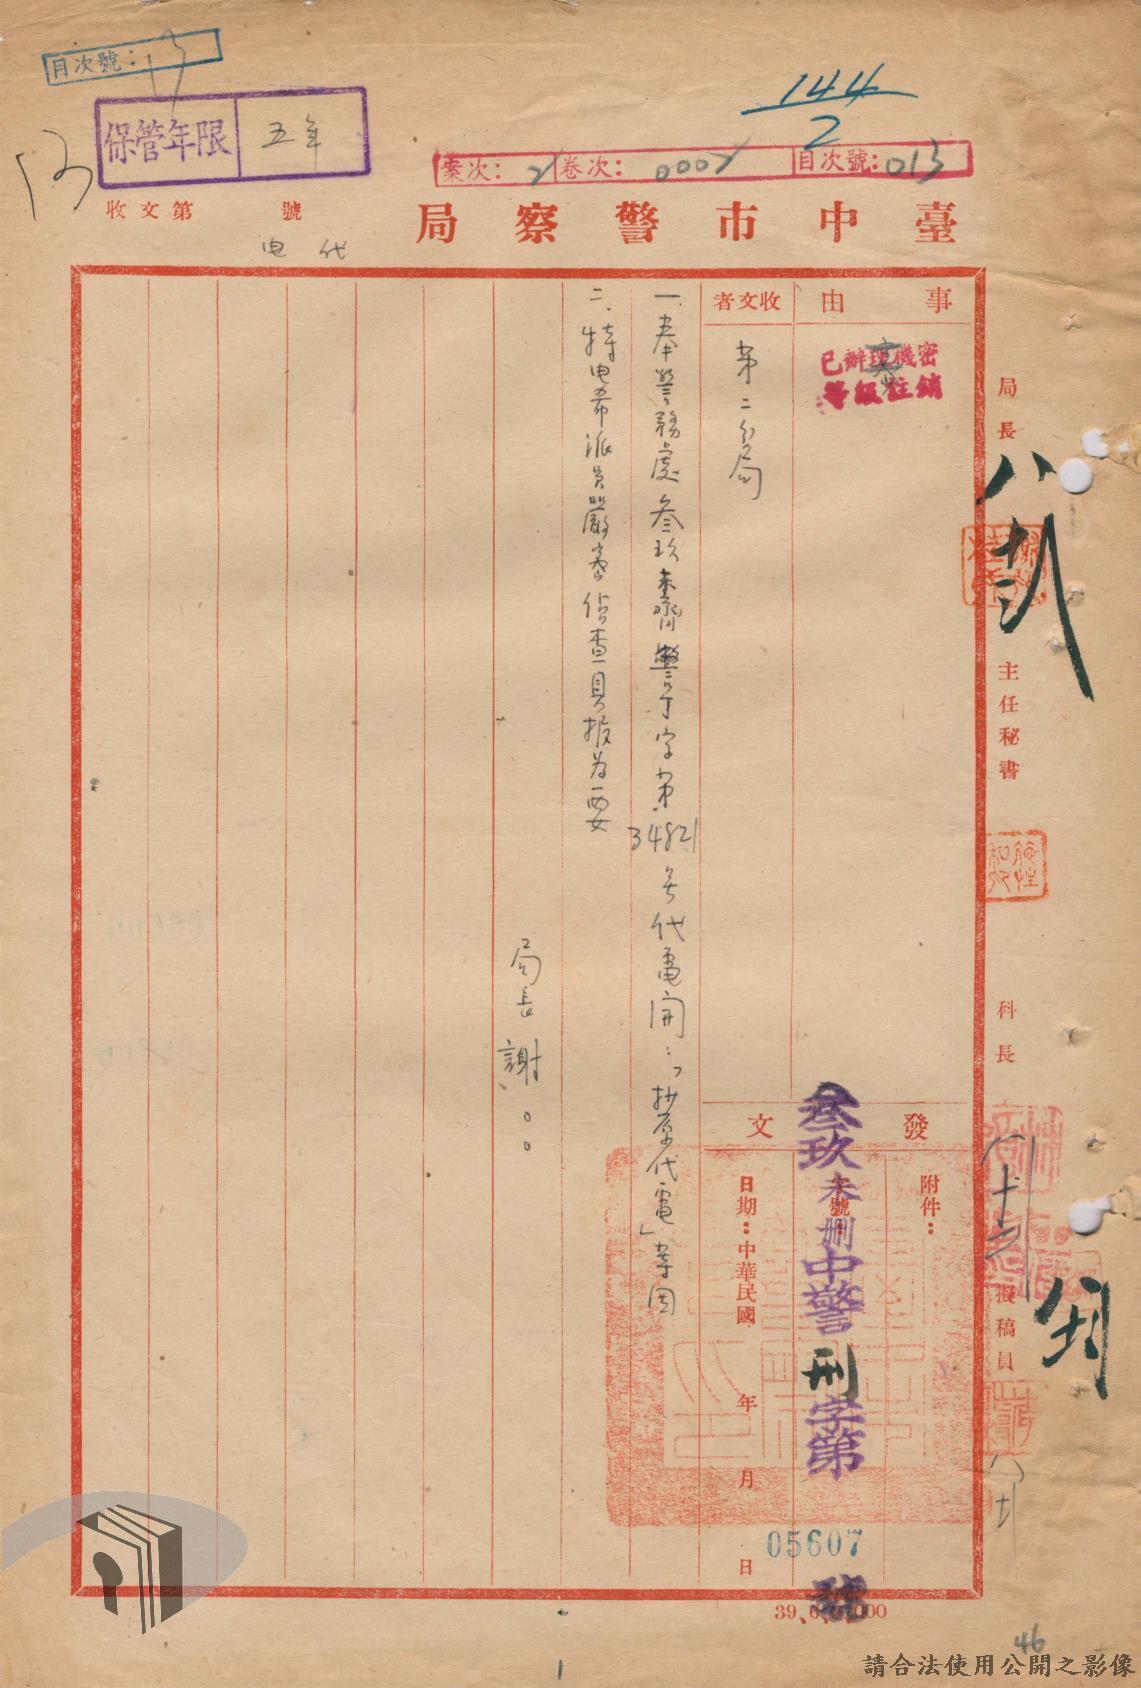 目次號：13
保管年限 五年
13
144/2
案次：2 卷次：0002 目次號：013
收文第 號
臺中市警察局
代电
事由
已辦理機密
等級註銷
收文者
第二分局
一、奉警務處叁玖未齊警丁字第34821号代電開：「抄原代電」等因
二、特电希派員嚴密偵查具报为要
局長 謝○○
發文
附件：
叁玖未刪中警刑字第
號
05607
號
日期：中華民國 年 月 日
局長
主任秘書
科長
擬稿員
46
1
請合法使用公開之影像